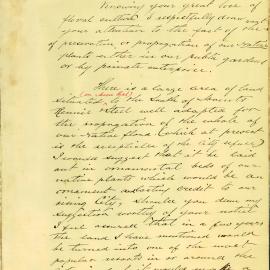 Knowing your great love of
floral culture I respectfully draw
your attention to the fact of the
of preservation or propagation of our native
plants either in our public gardens
or by private enterprise.
There is a large area of land
situated to the South of
Street well adapted for
the propagation of the whole of
our native flora (which at present
is the receptacle of the City refuse)
I would suggest that it be laid
out in ornamental beds of our
native plants which would be an
ornament and lasting credit to our
rising City, should you deem my
suggestion worthy of your notice
I feel assured that in a few years
the land I have mentioned would
be turned into one of the most
popular resorts in or around the